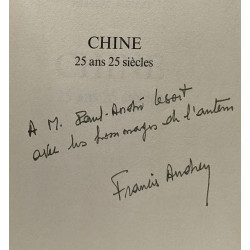 CHINE
25 ans 25 siècles
A M. Paul-André Lesort
avec les hommages de l'auteur
Francis Audrey